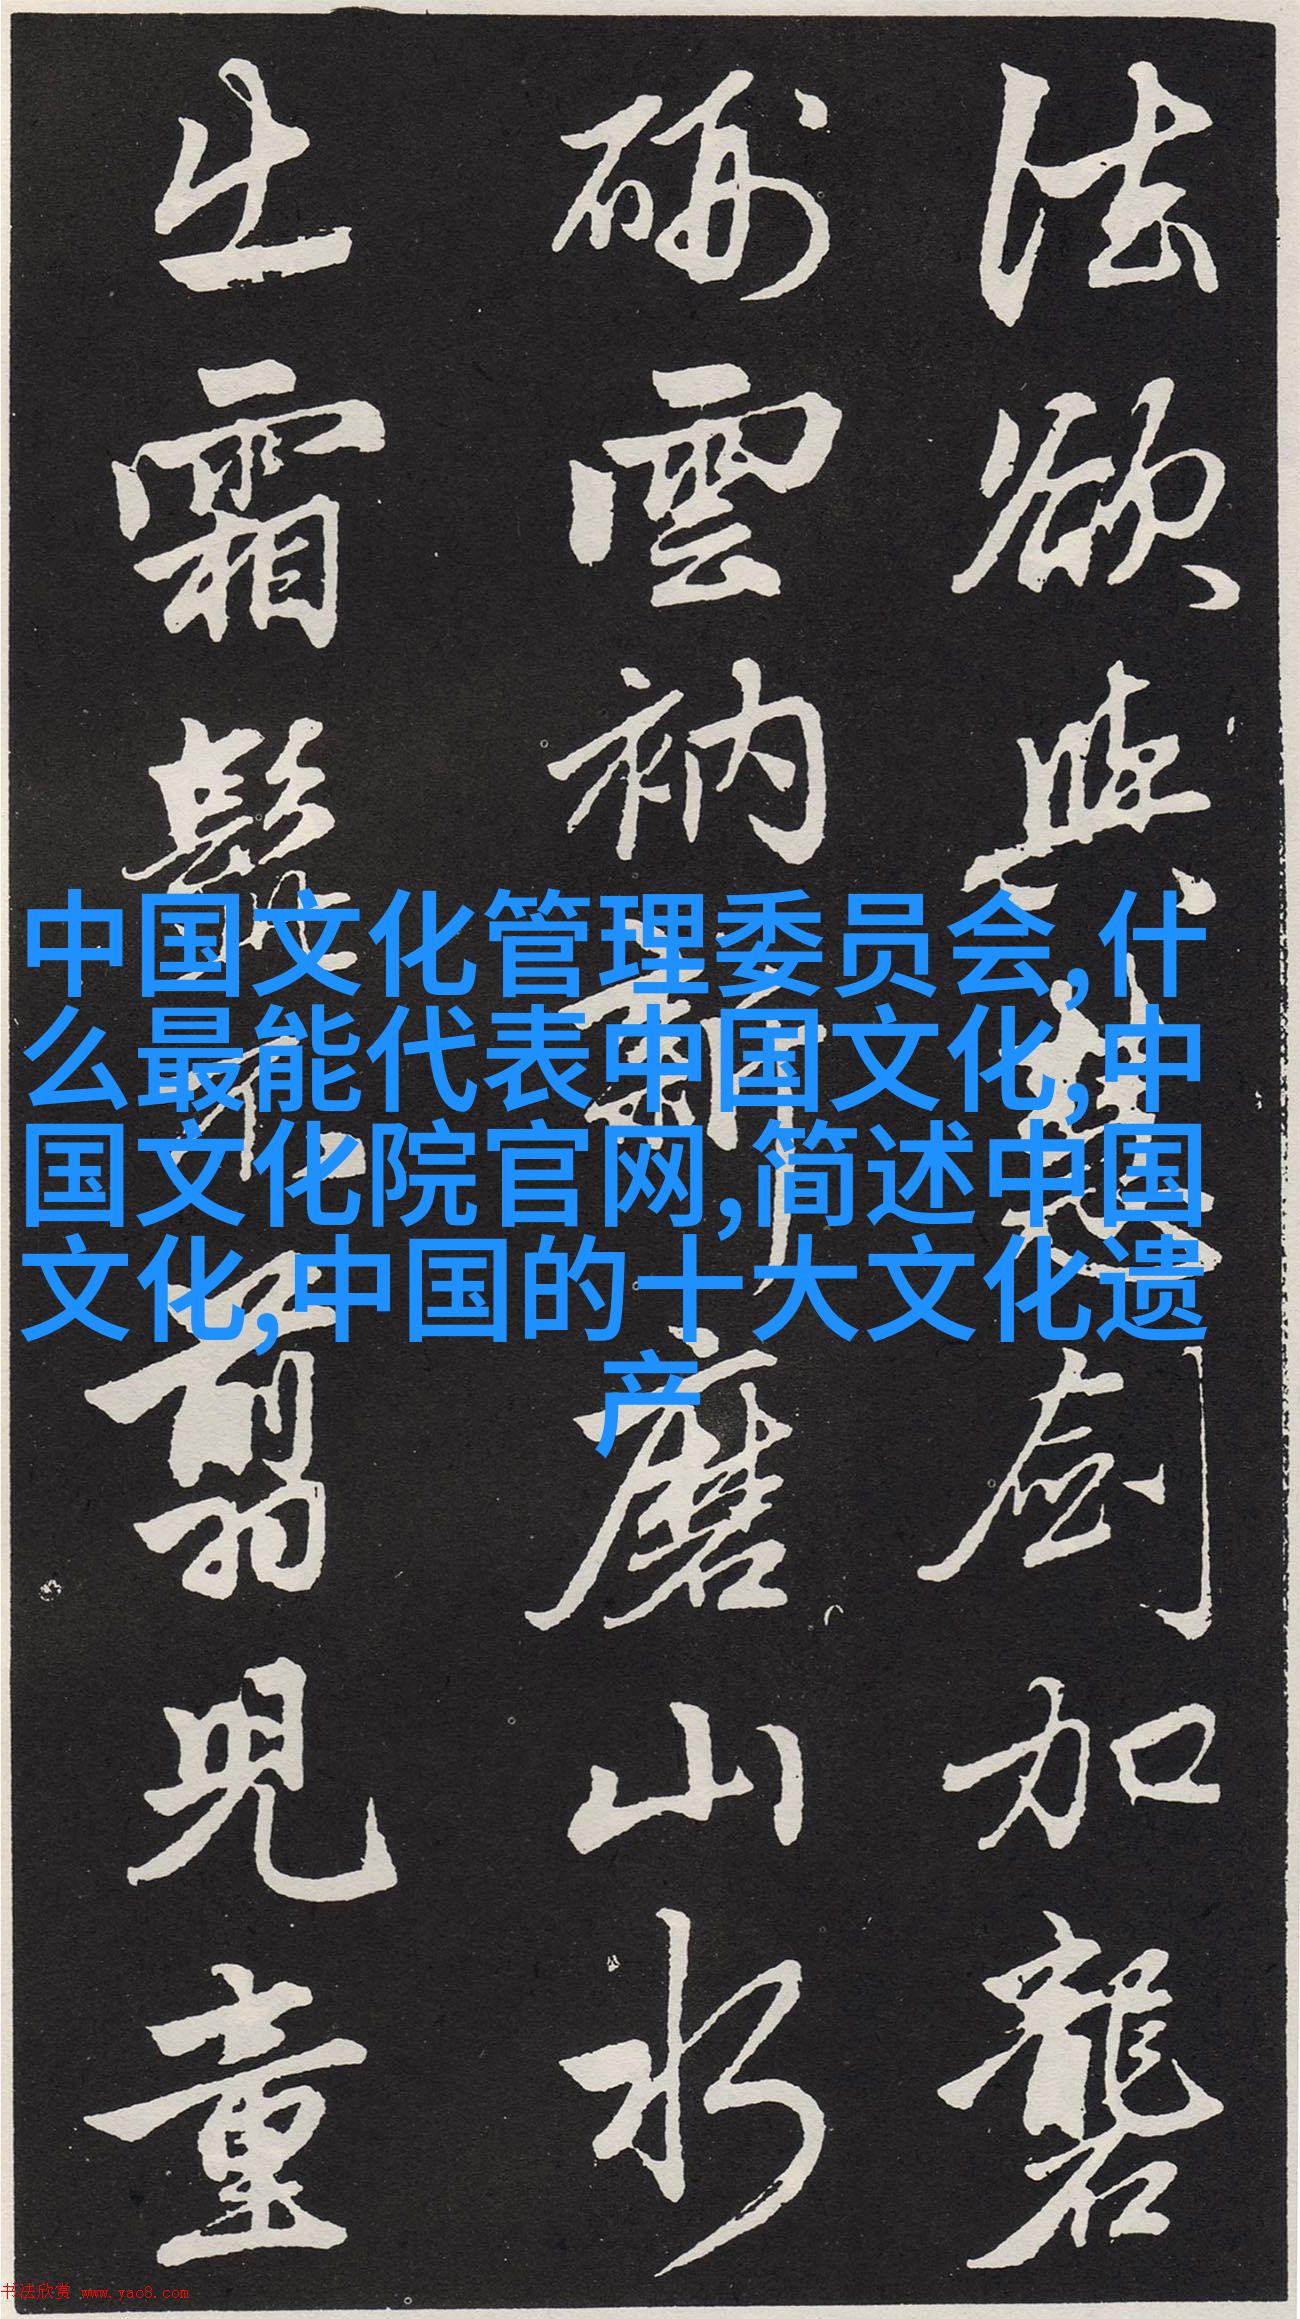 法欲與慧劍加礱
硎雲衲新磨山水
出霜髭不翦兒童
中国文化管理委员会,什
么最能代表中国文化,中
国文化院官网,简述中国
文化,中国的十大文化遗
产
书法欣赏 www.yac8.com